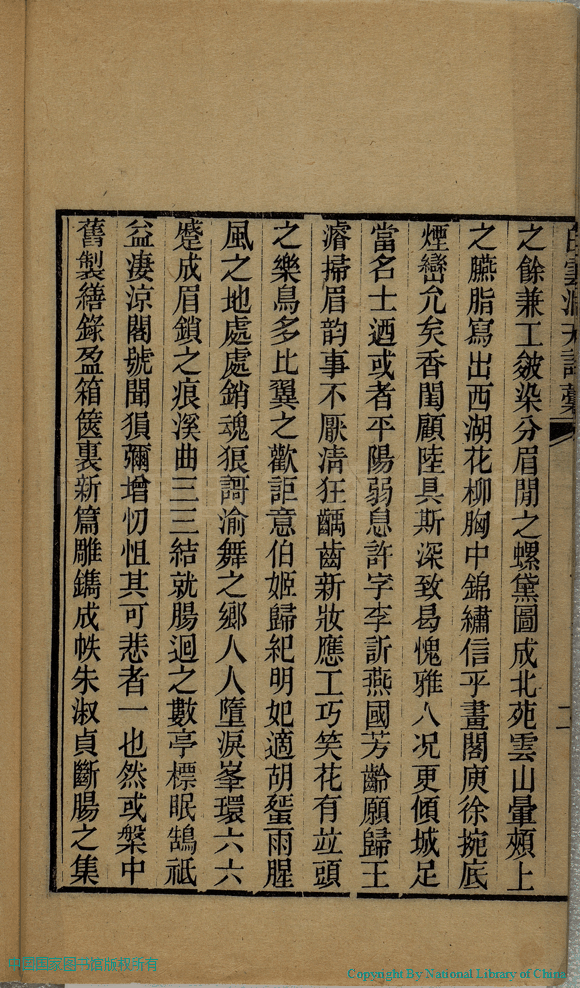 白雲洞天詩藁
二
之餘兼工皴染分眉閒之螺黛圖成北苑雲山暈頰上
之臙脂寫出西湖花柳胸中錦繡信乎畫閣庾徐捥底
煙巒允矣香閨顧陸具斯深致曷愧雅人况更傾城足
當名士迺或者平陽弱息許字李訢燕國芳齡願歸王
濬掃眉韵事不厭清狂齲齒新妝應工巧笑花有竝頭
之樂鳥多比翼之歡詎意伯姬歸紀明妃適胡蜑雨腥
風之地處處銷魂狼謌渝舞之鄉人人墮淚峯環六六
蹙成眉鎖之痕溪曲三三結就腸迴之數亭標眠鵠祗
益淒涼閣號聞猨彌增忉怛其可悲者一也然或槃中
舊製繕錄盈箱篋裏新篇雕鐫成帙朱淑貞斷腸之集
中国国家图书馆版权所有
Copyright By National Library of China